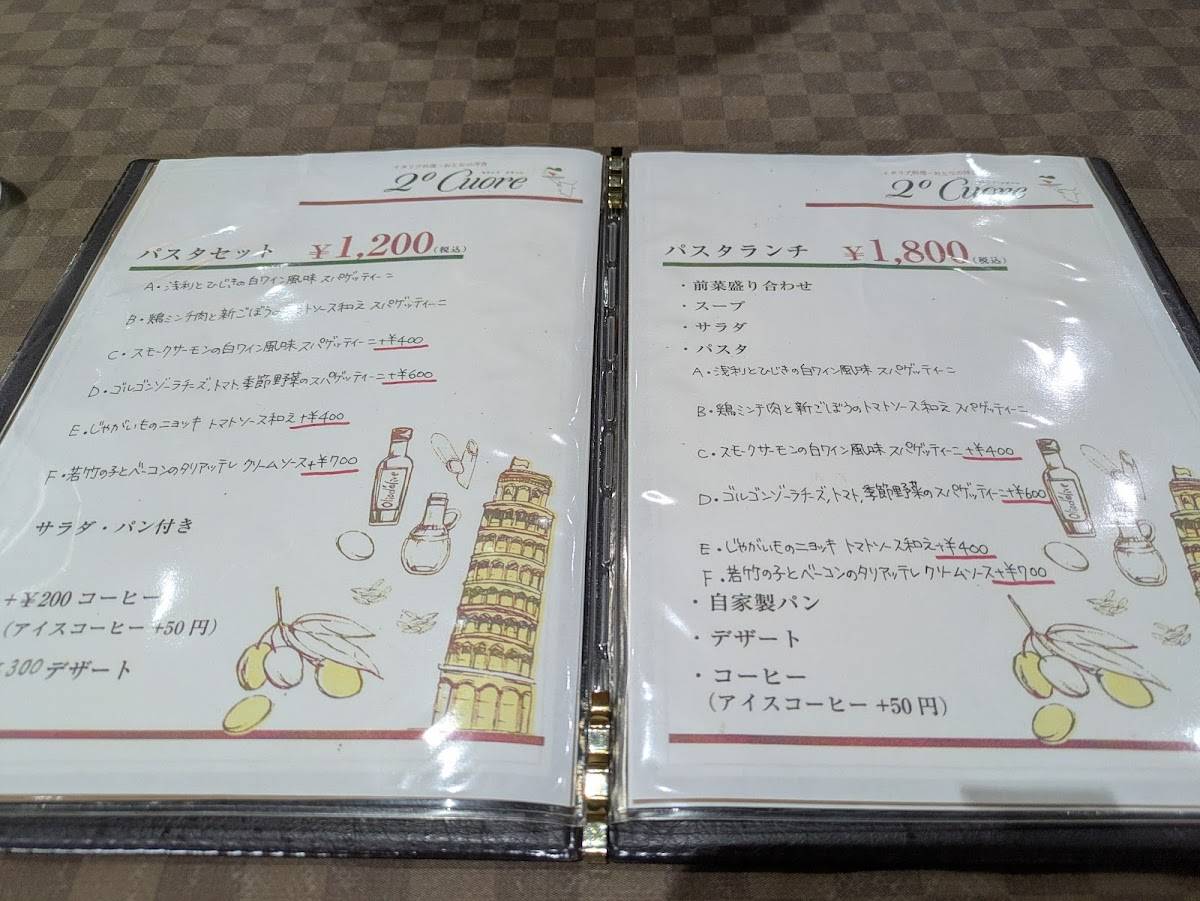 2º Cuore
パスタセット ¥1,200(税込)
A・浅利とひじきの白ワイン風味 スパゲッティーニ
B・鶏ミンチ肉と新ごぼうの トソース和え スパゲッティーニ
C・スモークサーモンの白ワイン風味 スパゲッティーニ+¥400
D・ゴルゴンゾーラチーズ,トマト,季節野菜のスパゲッティーニ+¥600
E・じゃがいものニョッキ トマトソース和え+¥400
F・若竹の子とベーコンのタリアッテレ クリームソース+¥700
サラダ・パン付き
+¥200 コーヒー
(アイスコーヒー +50円)
300 デザート
2º Cuore
パスタランチ ¥1,800(税込)
・前菜盛り合わせ
・スープ
・サラダ
・パスタ
A・浅利とひじきの白ワイン風味 スパゲッティーニ
B・鶏ミンチ肉と新ごぼうのトマトソース和え スパゲッティーニ
C・スモークサーモンの白ワイン風味 スパゲッティーニ+¥400
D・ゴルゴンゾーラチーズ,トマト,季節野菜のスパゲッティーニ+¥600
E・じゃがいものニョッキ トマトソース和え+¥400
F・若竹の子とベーコンのタリアッテレ クリームソース+¥700
・自家製パン
・デザート
・コーヒー
(アイスコーヒー +50円)